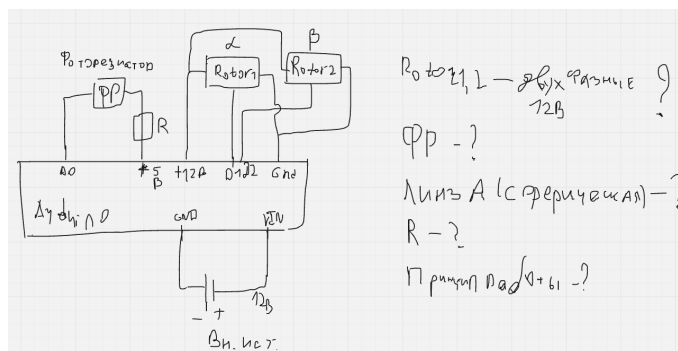 α
β
Фоторезистор
Rotor1
Rotor2
ФР
R
A0
+5
В
+12В
D1
D2
Gnd
Arduino
GND
VIN
12В
- +
Вн. ист.
Rotor1,2 — двухфазные ?
12В
ФР - ?
Линза (сферическая) — ?
R - ?
Принцип работы - ?